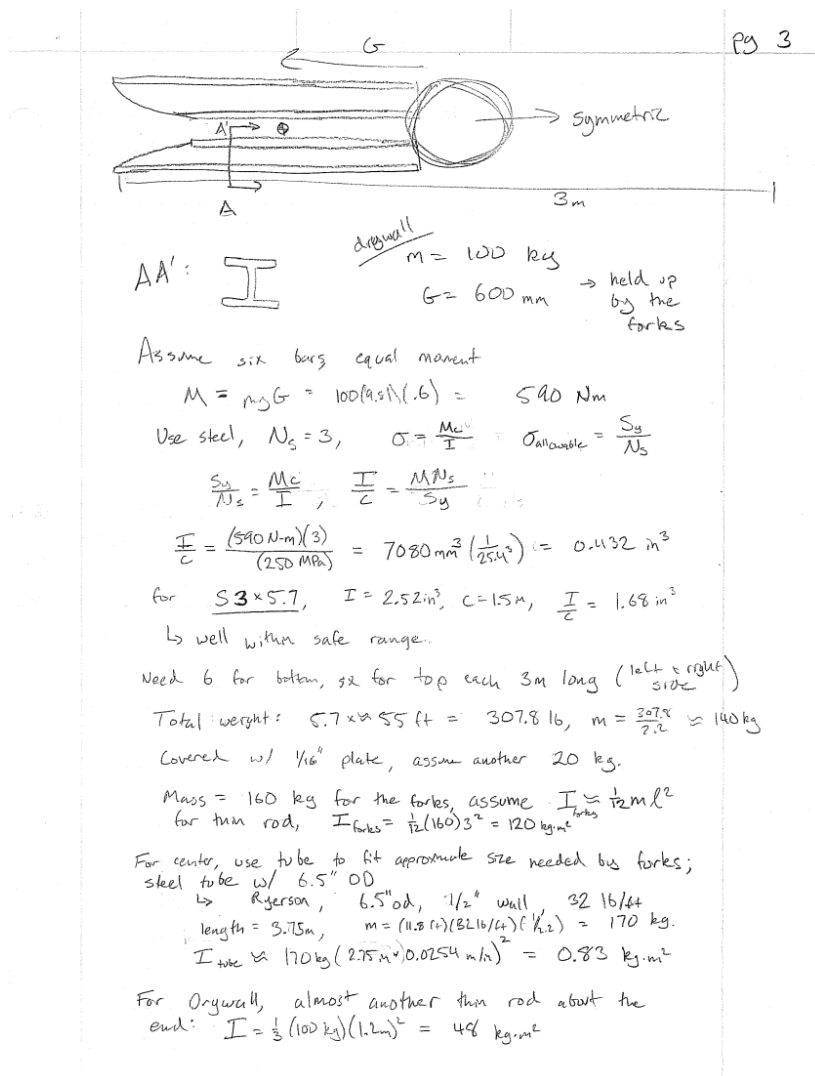 pg 3
G
A' 
Symmetric
A
3m
drywall
m = 100 kg
AA': I
G = 600 mm → held up
by the
forks
Assume six bars, equal moment
M = mgG = 100(9.81)(.6) = 590 Nm
Use steel, Ns = 3, σ = Mc/I σallowable = Sy/Ns
Sy/Ns = Mc/I, I/c = MNs/Sy
I/c = (590 N-m)(3)/(250 MPa) = 7080 mm³ (1/25.4³) = 0.432 in³
for S3×5.7, I = 2.52 in³, c = 1.5 in, I/c = 1.68 in³
↳ well within safe range.
Need 6 for bottom, six for top each 3m long (left & right side)
Total weight: 5.7 × ≈ 55 ft = 307.8 lb, m = 307.8/2.2 ≈ 140 kg
Covered w/ 1/16" plate, assume another 20 kg.
Mass = 160 kg for the forks, assume Iforks ≈ 1/12 ml²
for thin rod, Iforks = 1/12(160)3² = 120 kg·m²
For center, use tube to fit approximate size needed by forks;
steel tube w/ 6.5" OD
↳ Ryerson, 6.5" od, 1/2" wall, 32 lb/ft
length = 3.75m, m = (11.8 ft)(32 lb/ft)(1/2.2) = 170 kg.
Itube ≈ 170 kg (2.75 in × 0.0254 m/in)² = 0.83 kg·m²
For Drywall, almost another thin rod about the
end: I = 1/3 (100 kg)(1.2m)² = 48 kg·m²